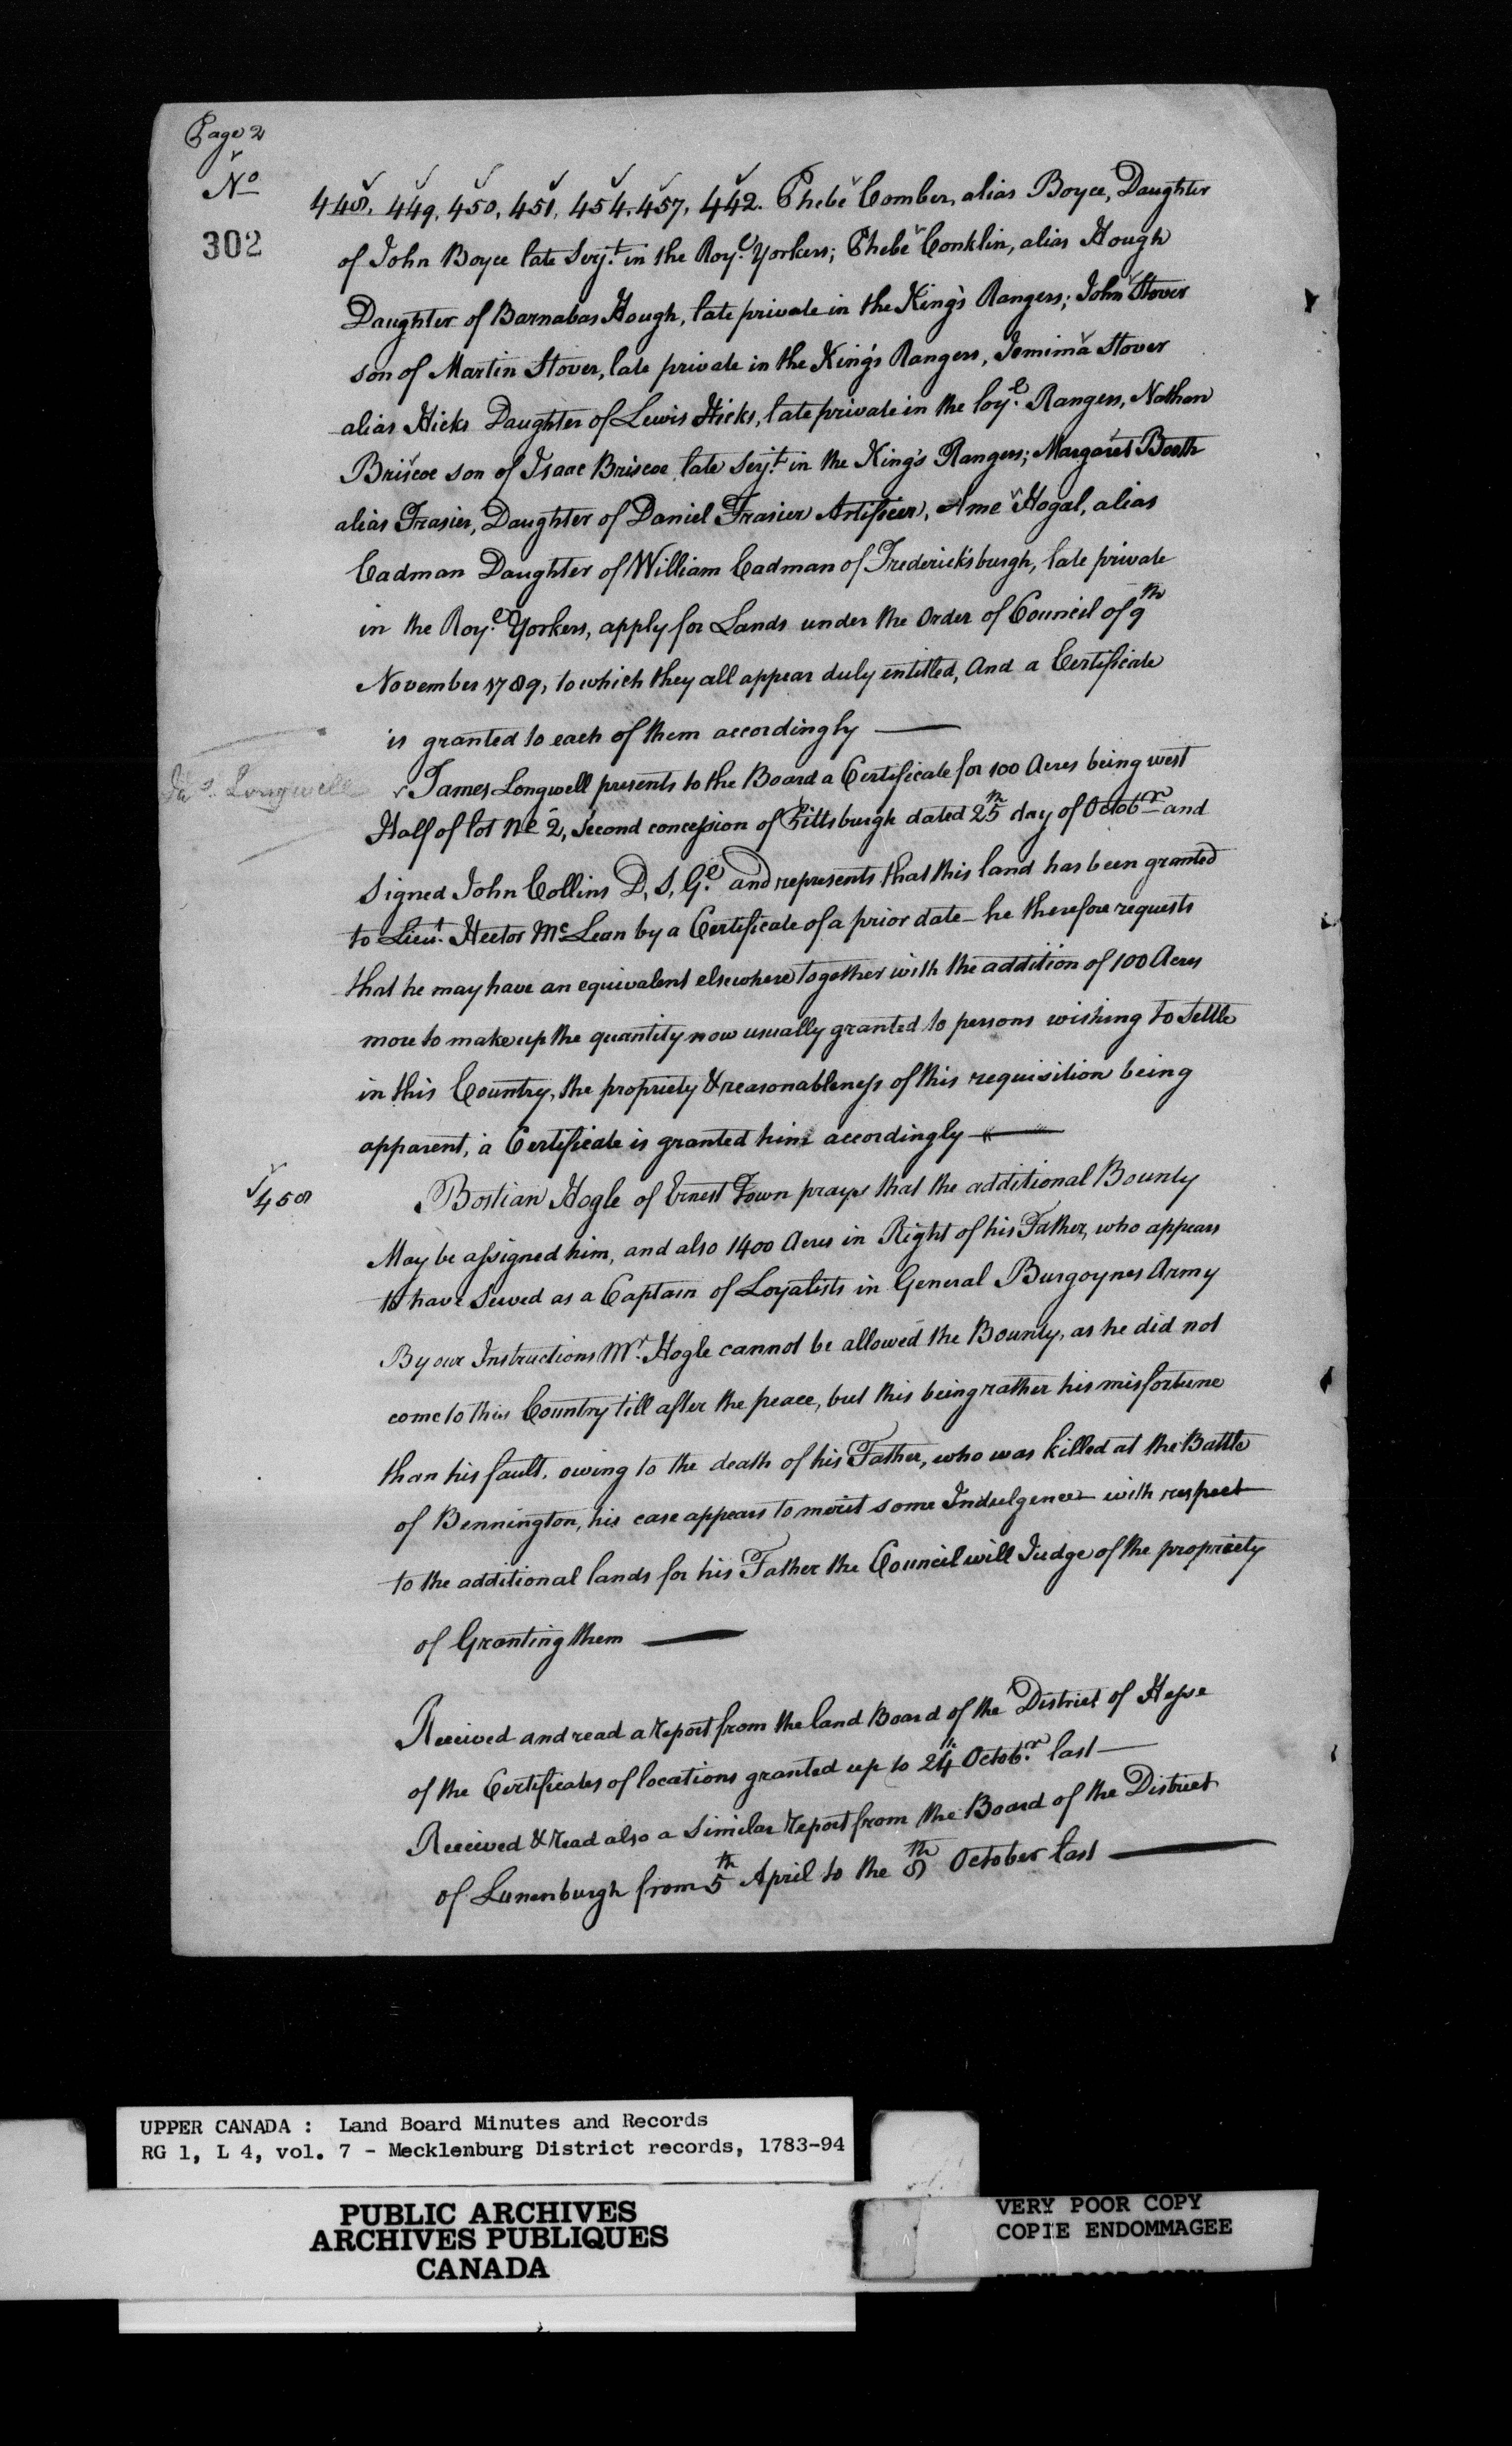 Page 2
No
302
448, 449, 450, 451, 454, 457, 442. Phebe Comber, alias Boyce, Daughter
of John Boyce late Serjt. in the Royl. Yorkers; Phebe Conklin, alias Hough
Daughter of Barnabas Hough, late private in the King's Rangers; John Stover
son of Martin Stover, late private in the King's Rangers, Jemima Stover
alias Hicks Daughter of Lewis Hicks, late private in the loyl. Rangers, Nathan
Briscoe son of Isaac Briscoe late Serjt. in the King's Rangers; Margaret Booth
alias Frasier, Daughter of Daniel Frasier Artificer, Ame Hogal, alias
Cadman Daughter of William Cadman of Fredericksburgh, late private
in the Royl. Yorkers, apply for Lands under the Order of Council of 9th
November 1789, to which they all appear duly entitled, And a Certificate
is granted to each of them accordingly —
Jas. Longwell
James Longwell presents to the Board a Certificate for 100 Acres being west
Half of lot No 2, Second concession of Pittsburgh dated 25th day of Octobr and
Signed John Collins D, S, Gl. and represents that this land has been granted
to Lieut. Hector McLean by a Certificate of a prior date – he therefore requests
that he may have an equivalent elsewhere together with the addition of 100 Acres
more to make up the quantity now usually granted to persons wishing to Settle
in this Country, the propriety & reasonableness of this requisition being
apparent, a Certificate is granted him accordingly —
458
Bostian Hogle of Ernest Town prays that the additional Bounty
May be assigned him, and also 1400 Acres in Right of his Father, who appears
to have Served as a Captain of Loyalists in General Burgoynes Army
By our Instructions Mr. Hogle cannot be allowed the Bounty, as he did not
come to this Country till after the peace, but this being rather his misfortune
than his fault, owing to the death of his Father, who was killed at the Battle
of Bennington, his case appears to merit some Indulgence with respect
to the additional lands for his Father the Council will Judge of the propriety
of Granting them —
Received and read a report from the land Board of the District of Hesse
of the Certificates of locations granted up to 24th Octobr. last —
Received & read also a similar report from the Board of the District
of Lunenburgh from 5th April to the 8th October last —
UPPER CANADA : Land Board Minutes and Records
RG 1, L 4, vol. 7 - Mecklenburg District records, 1783-94
PUBLIC ARCHIVES
ARCHIVES PUBLIQUES
CANADA
VERY POOR COPY
COPIE ENDOMMAGEE
VERY POOR COPY